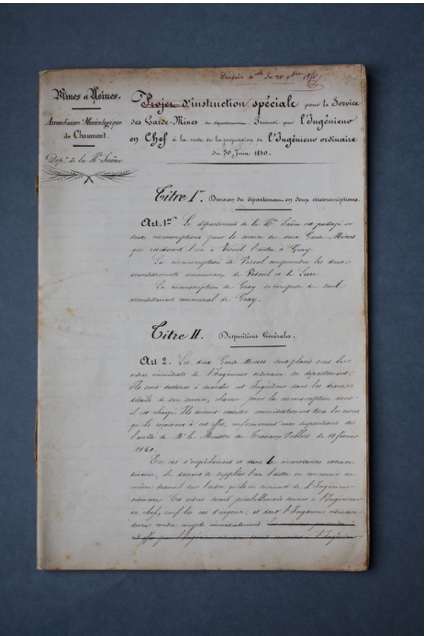 Mines et Usines.
Arrondissem.t Minéralogique
de Chaumont.
Dép.t de la H.te Saône.
Projet d'instruction spéciale pour le Service
des Garde-Mines du département. Dressé par l'Ingénieur
en Chef à la suite de la proposition de l'Ingénieur ordinaire
du 30 Juin 1850.
Titre I.er Division du département en deux circonscriptions.
Art. 1.er Le département de la H.te Saône est partagé en
deux circonscriptions pour le service de deux Garde-Mines
qui résideront l'un à Vesoul l'autre à Gray.
La circonscription de Vesoul comprendra les deux
arrondissements communaux de Vesoul et de Lure.
La circonscription de Gray se compose du seul
arrondissement communal de Gray.
Titre II. Dispositions Générales.
Art 2. Les deux Garde Mines sont placés sous les
ordres immédiats de l'Ingénieur ordinaire du département;
Ils sont destinés à seconder cet Ingénieur dans les divers
détails de son service, chacun pour la circonscription dont
il est chargé. Ils devront exécuter immédiatement tous les ordres
qu'ils recevront à cet effet, conformément aux dispositions de
l'arrêté de M.r le Ministre des Travaux Publics du 18 février
1840.
En cas d'empêchement et dans les circonstances extraor-
dinaires, ils devront se suppléer l'un l'autre ou concourir au
même travail sur l'ordre qu'ils en recevront de l'Ingénieur
ordinaire. Ces ordres seront préalablement soumis à l'Ingénieur
en chef, sauf les cas d'urgence, et dont l'Ingénieur ordinaire
devra rendre compte immédiatement